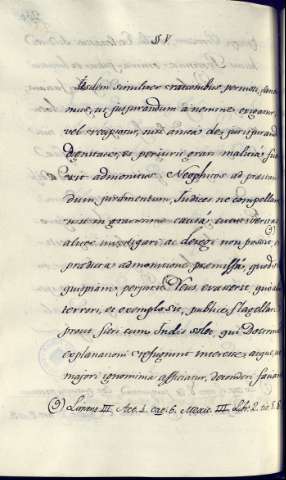 § V.
Iisdem similiter rationibus permoti, sanci-
mus, ut jusjurandum a nemine exigatur,
vel recipiatur, nisi antea de jurisjurandi
dignitate, et perjurii gravi malitia fue-
rit admonitus. Neophitos ad praestan-
dum juramentum, Judices ne compellant
nisi in gravissima causa, cujus veritas
aliter investigari, ac detegi non possit (9)
praedicta admonitione praemissa, quod si
quispiam perjurii reus evaserit, quod
terrori, et exemplo sit, publice flagelletur
prout fieri cum Indis solet, qui Doctrinae
explanationi refugiunt interesse, atque, ut
majori ignominia afficiatur, detonderi faciant
(9) Limens. III. Act. 4. cap. 6. Mexic. III. Libr. 2. tit. 5. §